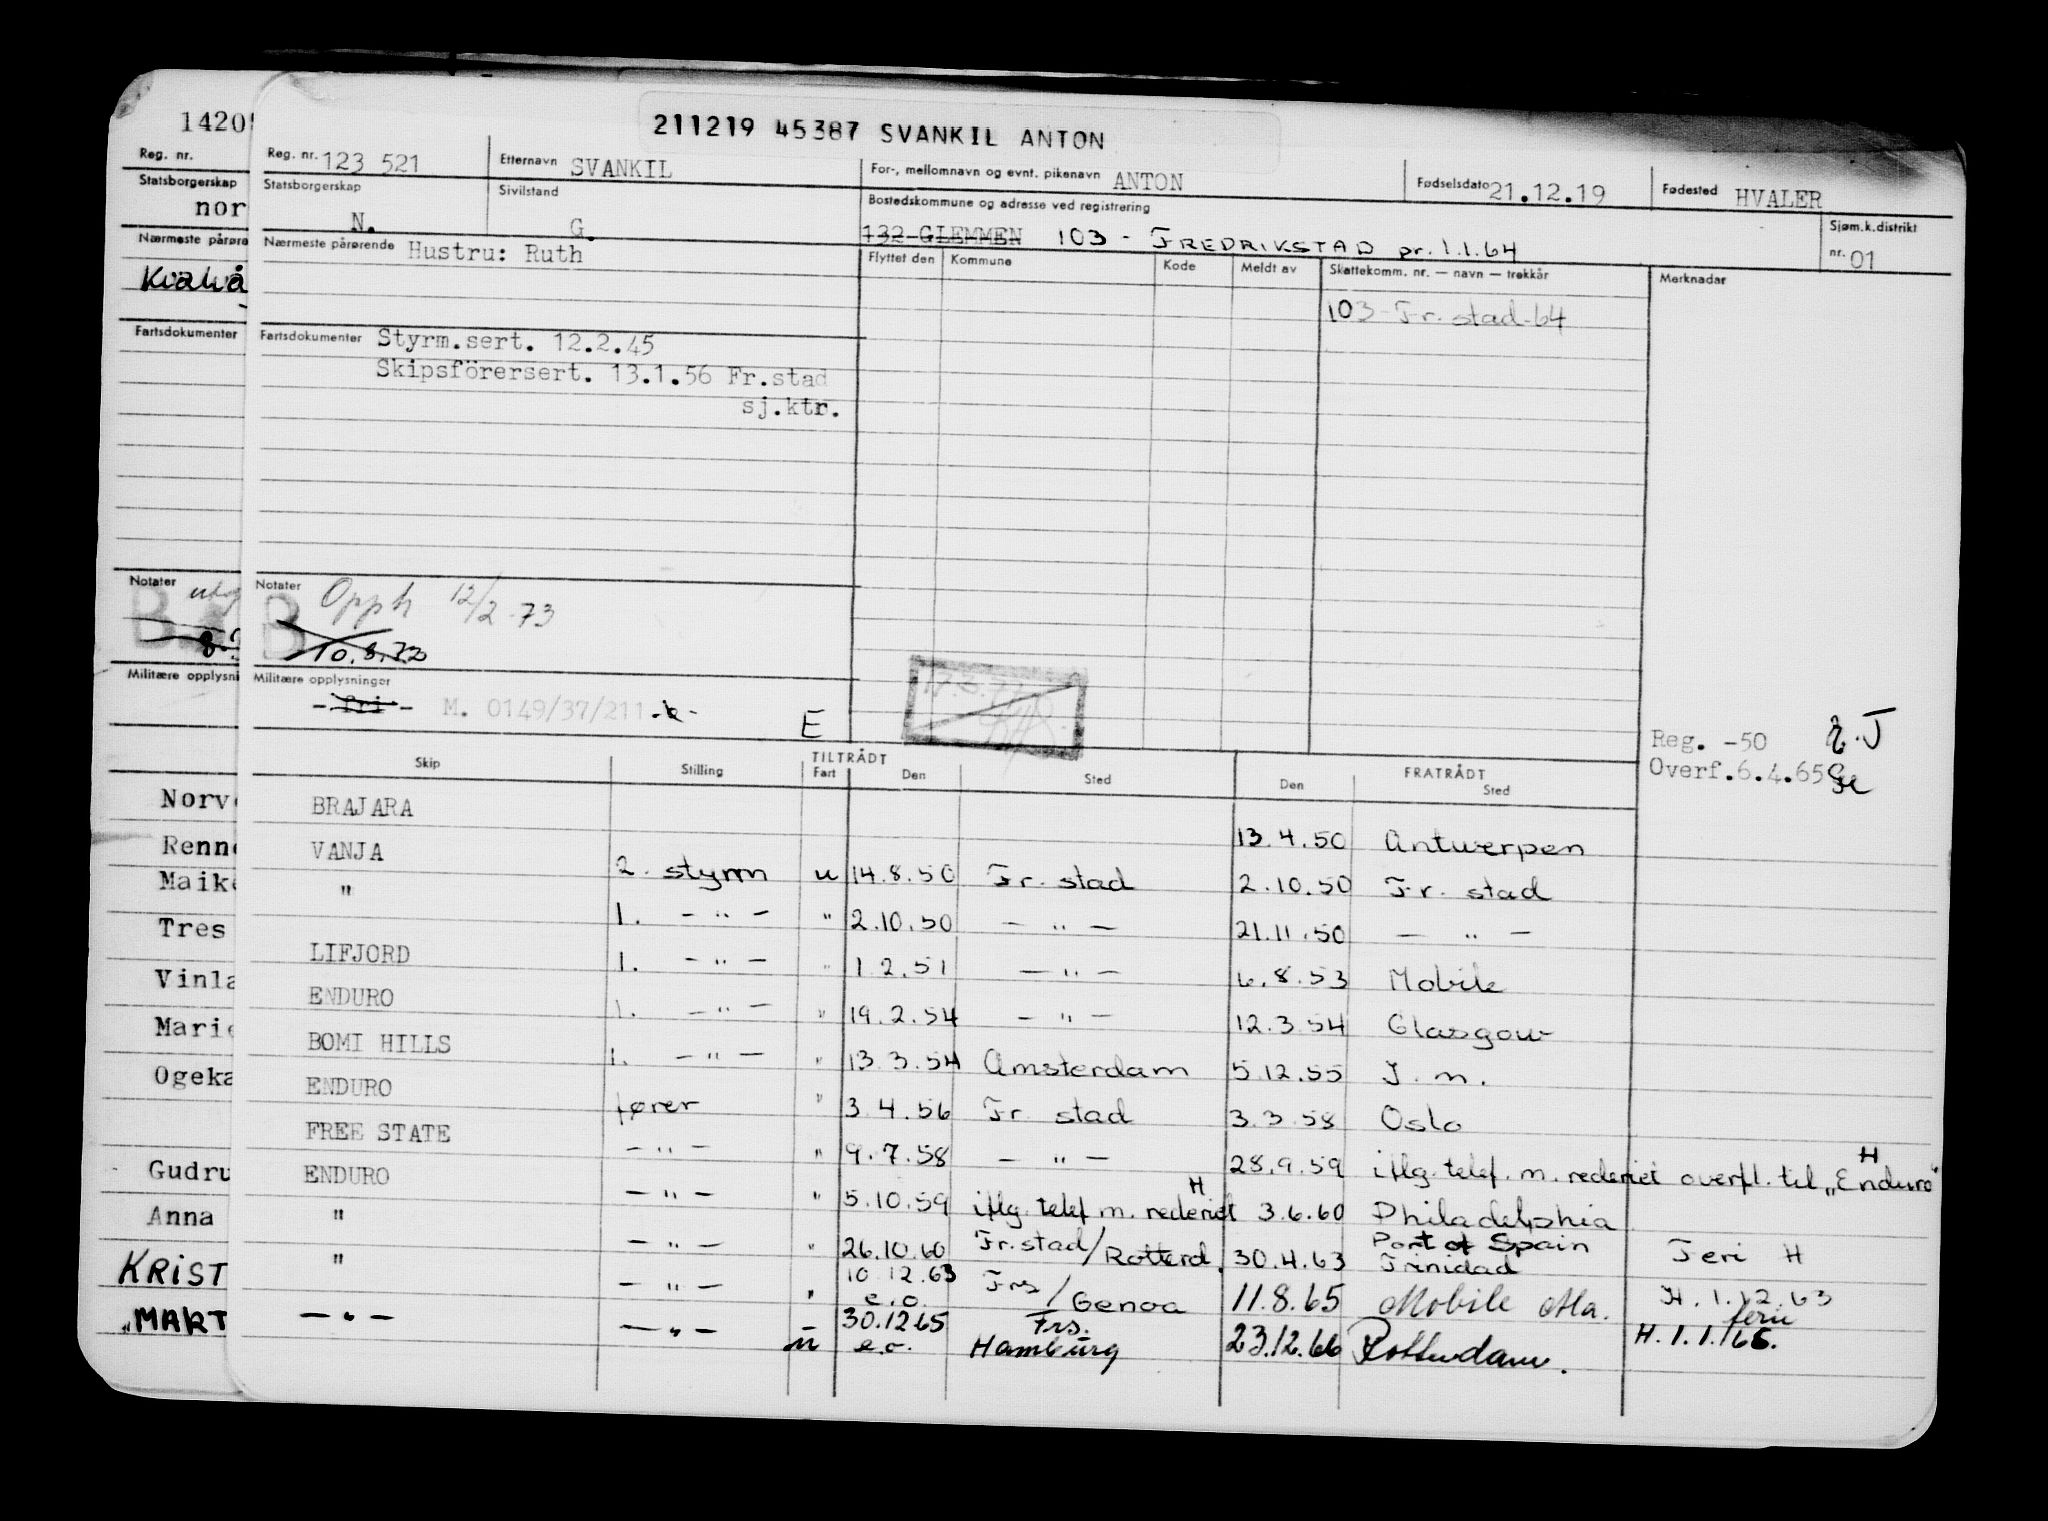 1420
211219 45387 SVANKIL ANTON
Reg. nr.
Reg. nr. 123 521 Etternavn SVANKIL For-, mellomnavn og evnt. pikenavn ANTON Fødselsdato 21.12.19 Fødested HVALER
Statsborgerskap
nor
Statsborgerskap N. Sivilstand G. Bostedskommune og adresse ved registrering
132 GLEMMEN 103 - FREDRIKSTAD pr. 1.1.64 Sjøm.k.distrikt nr. 01
Nærmeste pårøre
Nærmeste pårørende Hustru: Ruth Flyttet den Kommune Kode Meldt av Skattekomm. nr. — navn — trekkår Merknader
103 - Fr. stad - 64
Fartsdokumenter
Fartsdokumenter Styrm.sert. 12.2.45
Skipsförersert. 13.1.56 Fr.stad
sj.ktr.
Notater
B
Notater Opph 12/2-73
B 10.8.72
Militære opplysni
Militære opplysninger
- fri - M. 0149/37/211 E
Reg. -50
Overf. 6.4.65
Skip Stilling TILTRÅDT Fart Den Sted FRATRÅDT Den Sted
Norv
BRAJARA 13.4.50 Antwerpen
Renn
VANJA 2. styrm u 14.8.50 Fr. stad 2.10.50 Fr. stad
Maik
" 1. - " - " 2.10.50 — " — 21.11.50 — " —
Tres
LIFJORD 1. - " - " 1.2.51 — " — 6.8.53 Mobile
Vinla
ENDURO 1. - " - " 19.2.54 — " — 12.3.54 Glasgow
Marie
BOMI HILLS 1. - " - " 13.3.54 Amsterdam 5.12.55 J. m.
Ogeka
ENDURO fører " 3.4.56 Fr. stad 3.3.58 Oslo
FREE STATE - " - " 9.7.58 — " — 28.9.59 iflg. telef. m. rederiet overfl. til „Enduro" H
Gudru
ENDURO - " - " 5.10.59 iflg. telef m. rederiet H 3.6.60 Philadelphia
Anna
" - " - " 26.10.60 Fr.stad/Rotterd. 30.4.63 Port of Spain Trinidad Feri H
KRIST
" - " - " 10.12.63 e.o. Frs/Genoa 11.8.65 Mobile Ala. H. 1.12.63 ferie
„MART
— " — — " — u 30.12.65 e.o. Frs. Hamburg 23.12.66 Rotterdam. H. 1.1.66.